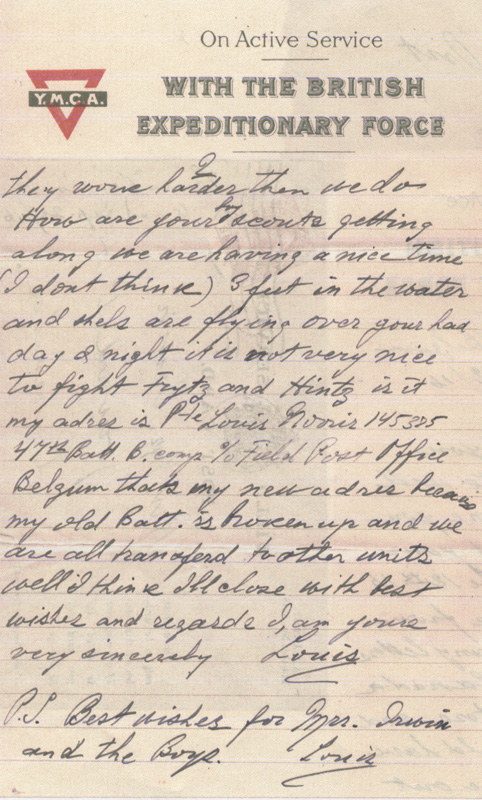 On Active Service
WITH THE BRITISH
EXPEDITIONARY FORCE
Y.M.C.A.
they worke harder then we do
How are your boy scouts getting
along we are having a nice time
(I dont think) 3 feet in the water
and shels are flying over your had
day & night it is not very nice
to fight Frytz and Hintz is it
my adres is Pte Louis 145385
47th Batt. B. comp c/o Field Post Office
Belgum thats my new adres because
my old Batt. is broken up and we
are all transferd to other units
well i think I'll close with best
wishes and regards I, am yours
very sincersly Louis
P.S. Best wishes for Mrs. Irwin
and the Boys. Louis